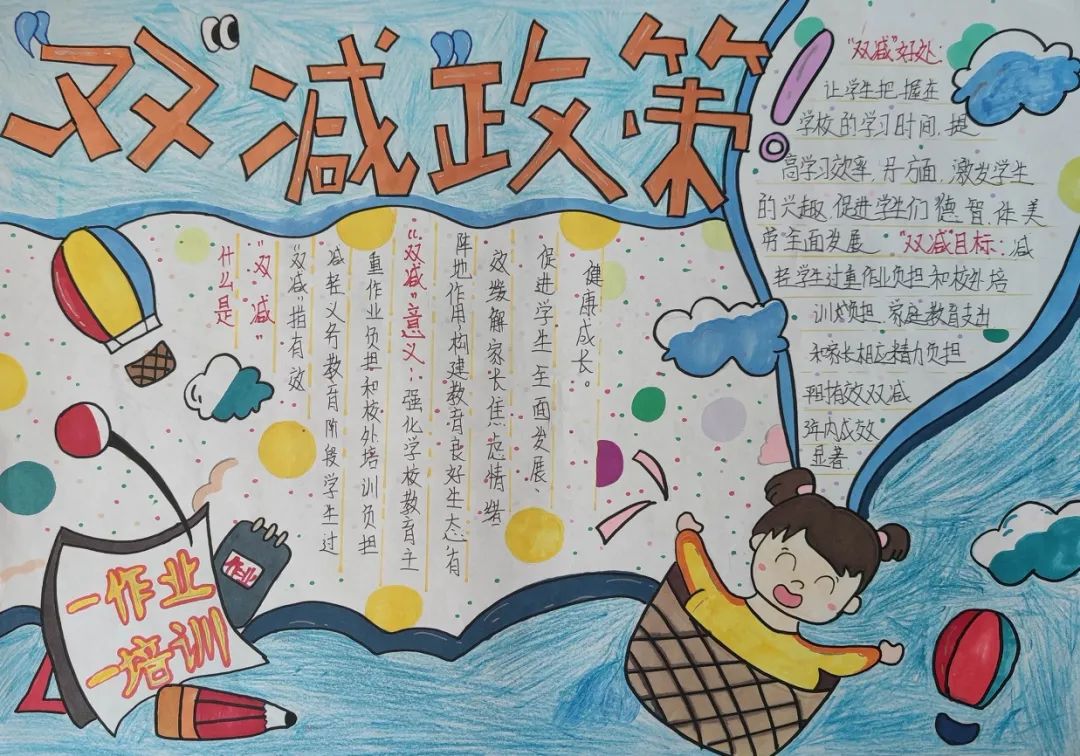 “双减”政策！
什么是
“双减”
“双减”指有效
减轻义务教育阶段学生过
重作业负担和校外培训负担
“双减”意义：强化学校教育主
阵地作用，构建教育良好生态，有
效缓解家长焦虑情绪
促进学生全面发展、
健康成长。
“双减”好处：
让学生把握在
学校的学习时间，提
高学习效率，另一方面，激发学生
的兴趣，促进学生们德、智、体、美
劳全面发展 “双减”目标：减
轻学生过重作业负担和校外培
训负担，家庭教育支出
和家长相应精力负担
措效双减
3年内成效
显著
作业
-作业
-培训